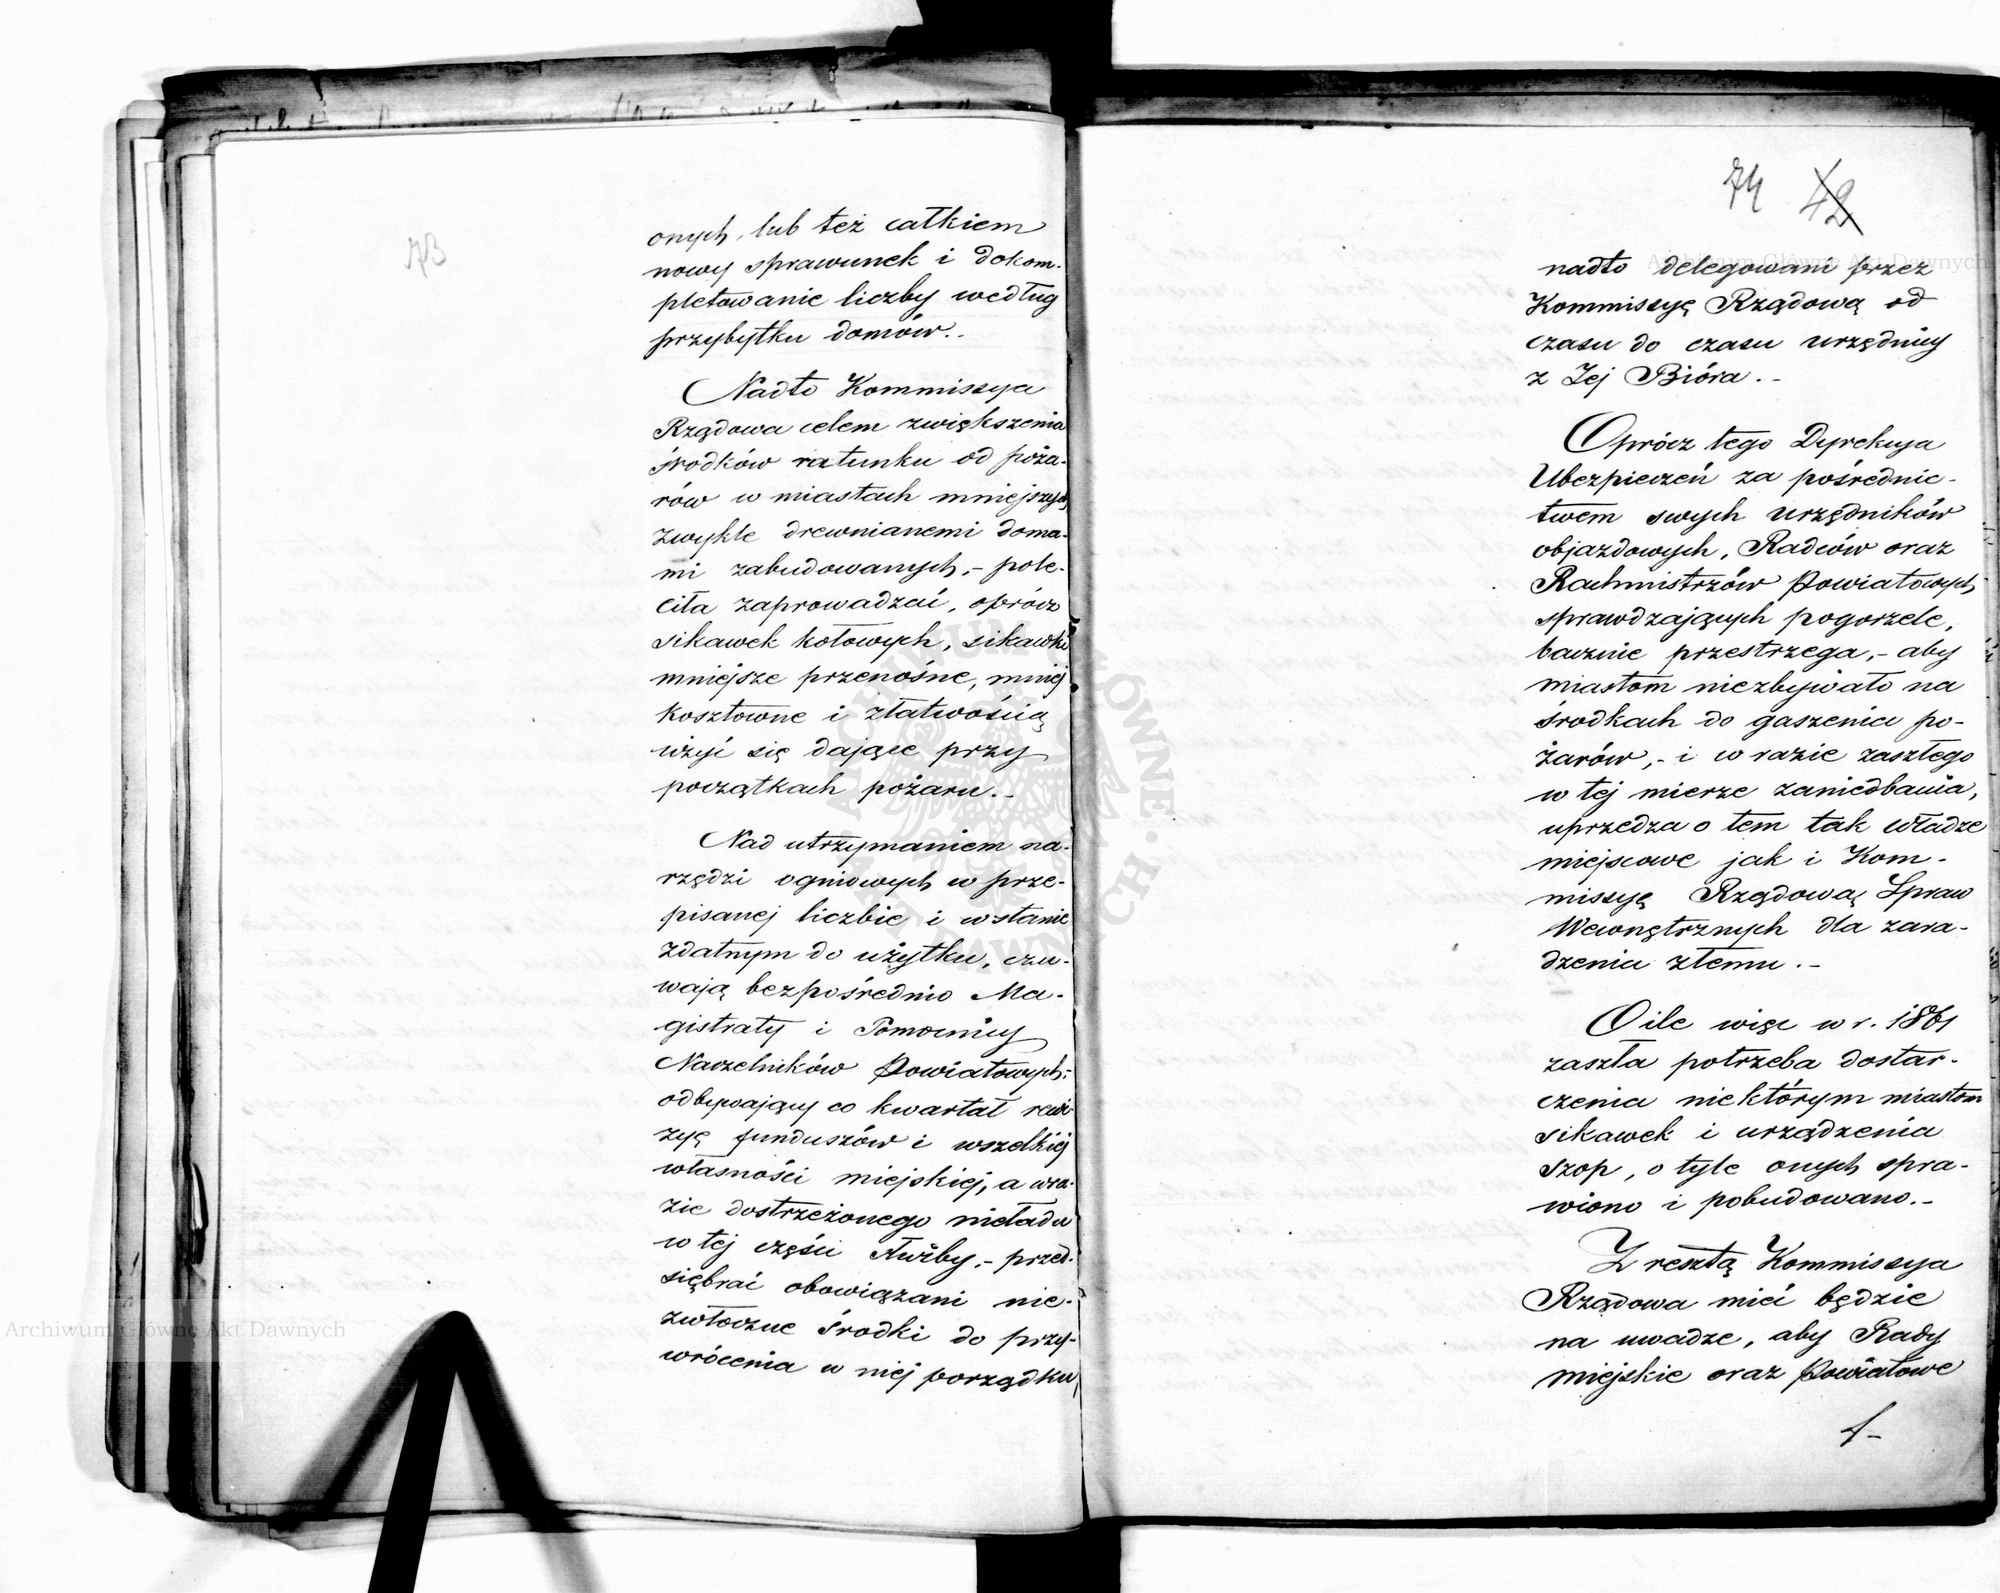 73
onych, lub też całkiem
nowy sprawunek i dokom-
pletowanie liczby według
przybytku domów.-
Nadto Kommissya
Rządowa celem zwiększenia
środków ratunku od poża-
rów w miastach mniejszych
zwykle drewnianemi doma-
mi zabudowanych,- pole-
ciła zaprowadzać, oprócz
sikawek kołowych, sikawki
mniejsze przenośne, mniej
kosztowne i złatwością
użyć się dające przy
początkach pożaru.-
Nad utrzymaniem na-
rzędzi ogniowych w prze-
pisanej liczbie i wstanie
zdatnym do użytku, czu-
wają bezpośrednio Ma-
gistraty i Pomocnicy
Naczelników Powiatowych;
odbywający co kwartał rewi-
zyę funduszów i wszelkiej
własności miejskiej, a wra-
zie dostrzeżonego nieładu
w tej części służby,- przed-
siębrać obowiązani nie-
zwłoczne środki do przy-
wrócenia w niej porządku,
74 42
nadto delegowani przez
Kommissyę Rządową od
czasu do czasu urzędnicy
z Jej Bióra.-
Oprócz tego Dyrekcya
Ubezpieczeń za pośrednic-
twem swych urzędników
objazdowych, Radców oraz
Rachmistrzów Powiatowych
sprawdzających pogorzele,
bacznie przestrzega,- aby
miastom niezbywało na
środkach do gaszenia po-
żarów,- i w razie zaszłego
w tej mierze zaniedbania,
uprzedza o tem tak władze
miejscowe jak i Kom-
missyę Rządową Spraw
Wewnętrznych dla zara-
dzenia złemu.-
O ile więc w r. 1861
zaszła potrzeba dostar-
czenia niektórym miastom
sikawek i urządzenia
szop, o tyle onych spra-
wiono i pobudowano.-
Z resztą Kommissya
Rządowa mieć będzie
na uwadze, aby Rady
miejskie oraz Powiatowe
Archiwum Główne Akt Dawnych
Archiwum Główne Akt Dawnych